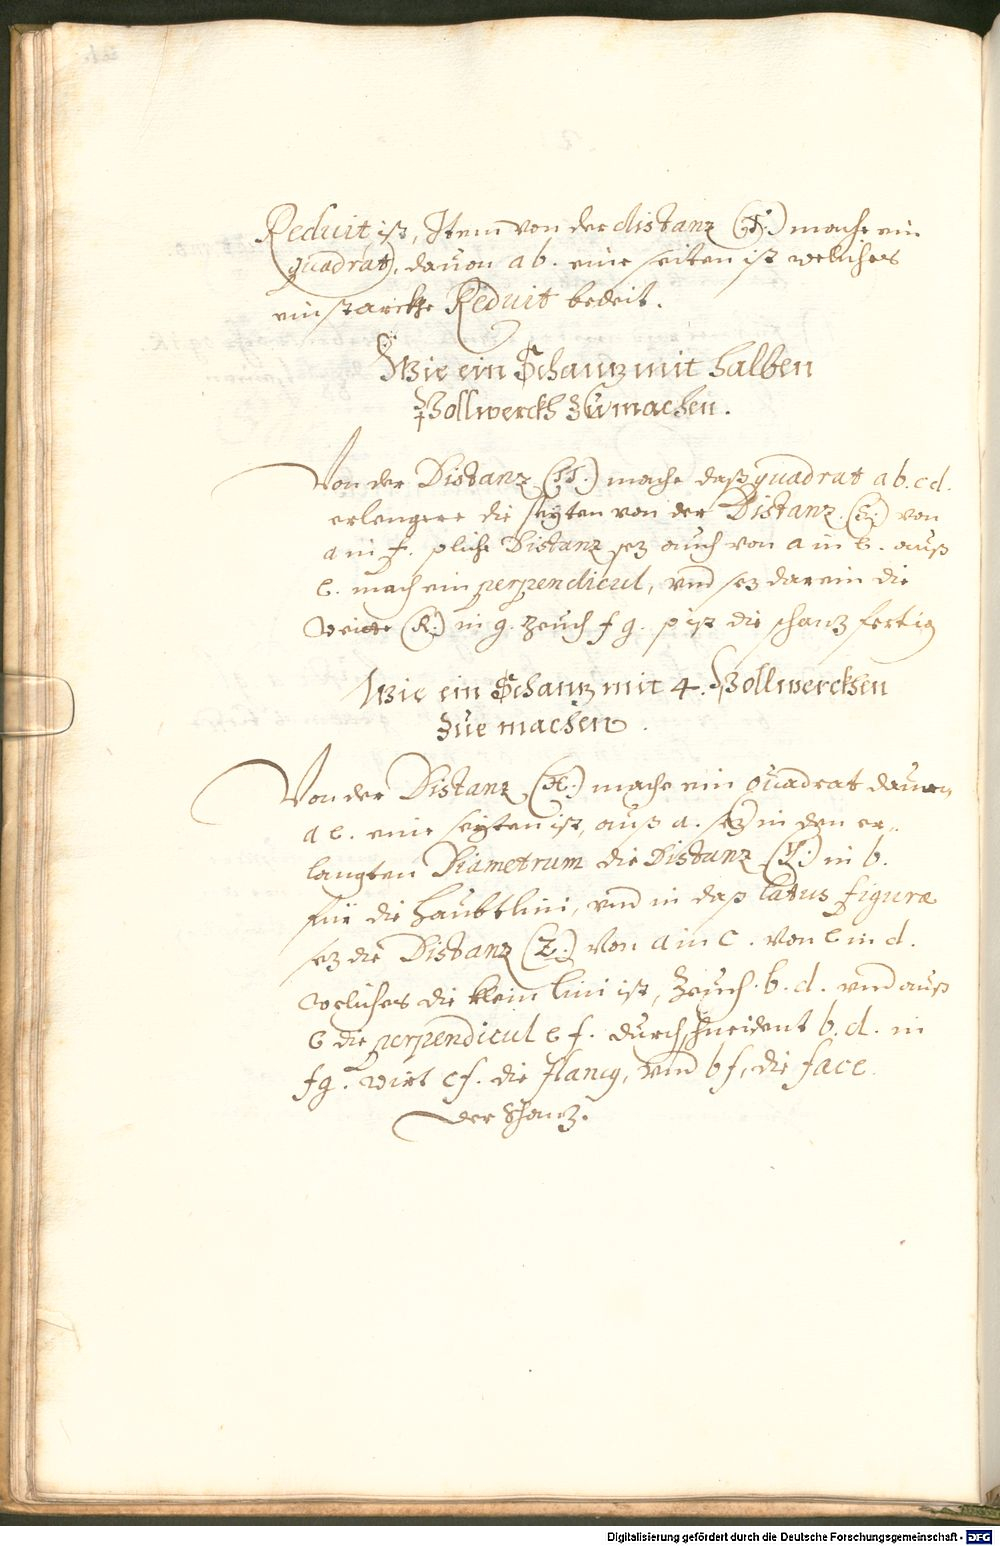 Reduit ist, Item von der distanz mache ein
quadrat, dauon a b. eine seiten ist weliches
ein starckhe Reduit bedeit.
Wie ein Schanz mit halben
Pollwerckh zu machen.
Von der Distanz (H.) mache daß quadrat a b. c d.
erlengere die seyten von der Distanz von
a in f. sliche Distanz sez auch von a in e. auß
e. mach ein perpendicul, vnd sez darein die
weitte (K.) in g. Zeuch f g. so ist die schanz fertig
Wie ein Schanz mit 4. Pollwerckhen
Zue machen.
Von der Distanz (X.) mache ein Quadrat dauon
a e. eine seyten ist, auß a. sez in den er„
langten Diametrum die Distanz (Y.) in b.
für die haubtlini, vnd in daß latus figuræ
sez die Distanz (Z.) von a in c. von e in d.
weliches die klein lini ist, Zeuch. b. d. vnd auß
e die perpendicul e f. durchschneident b. d. in
f g. wirt e f. die flanq, vnd b f, die face
der Schanz.
Digitalisierung gefördert durch die Deutsche Forschungsgemeinschaft - DFG